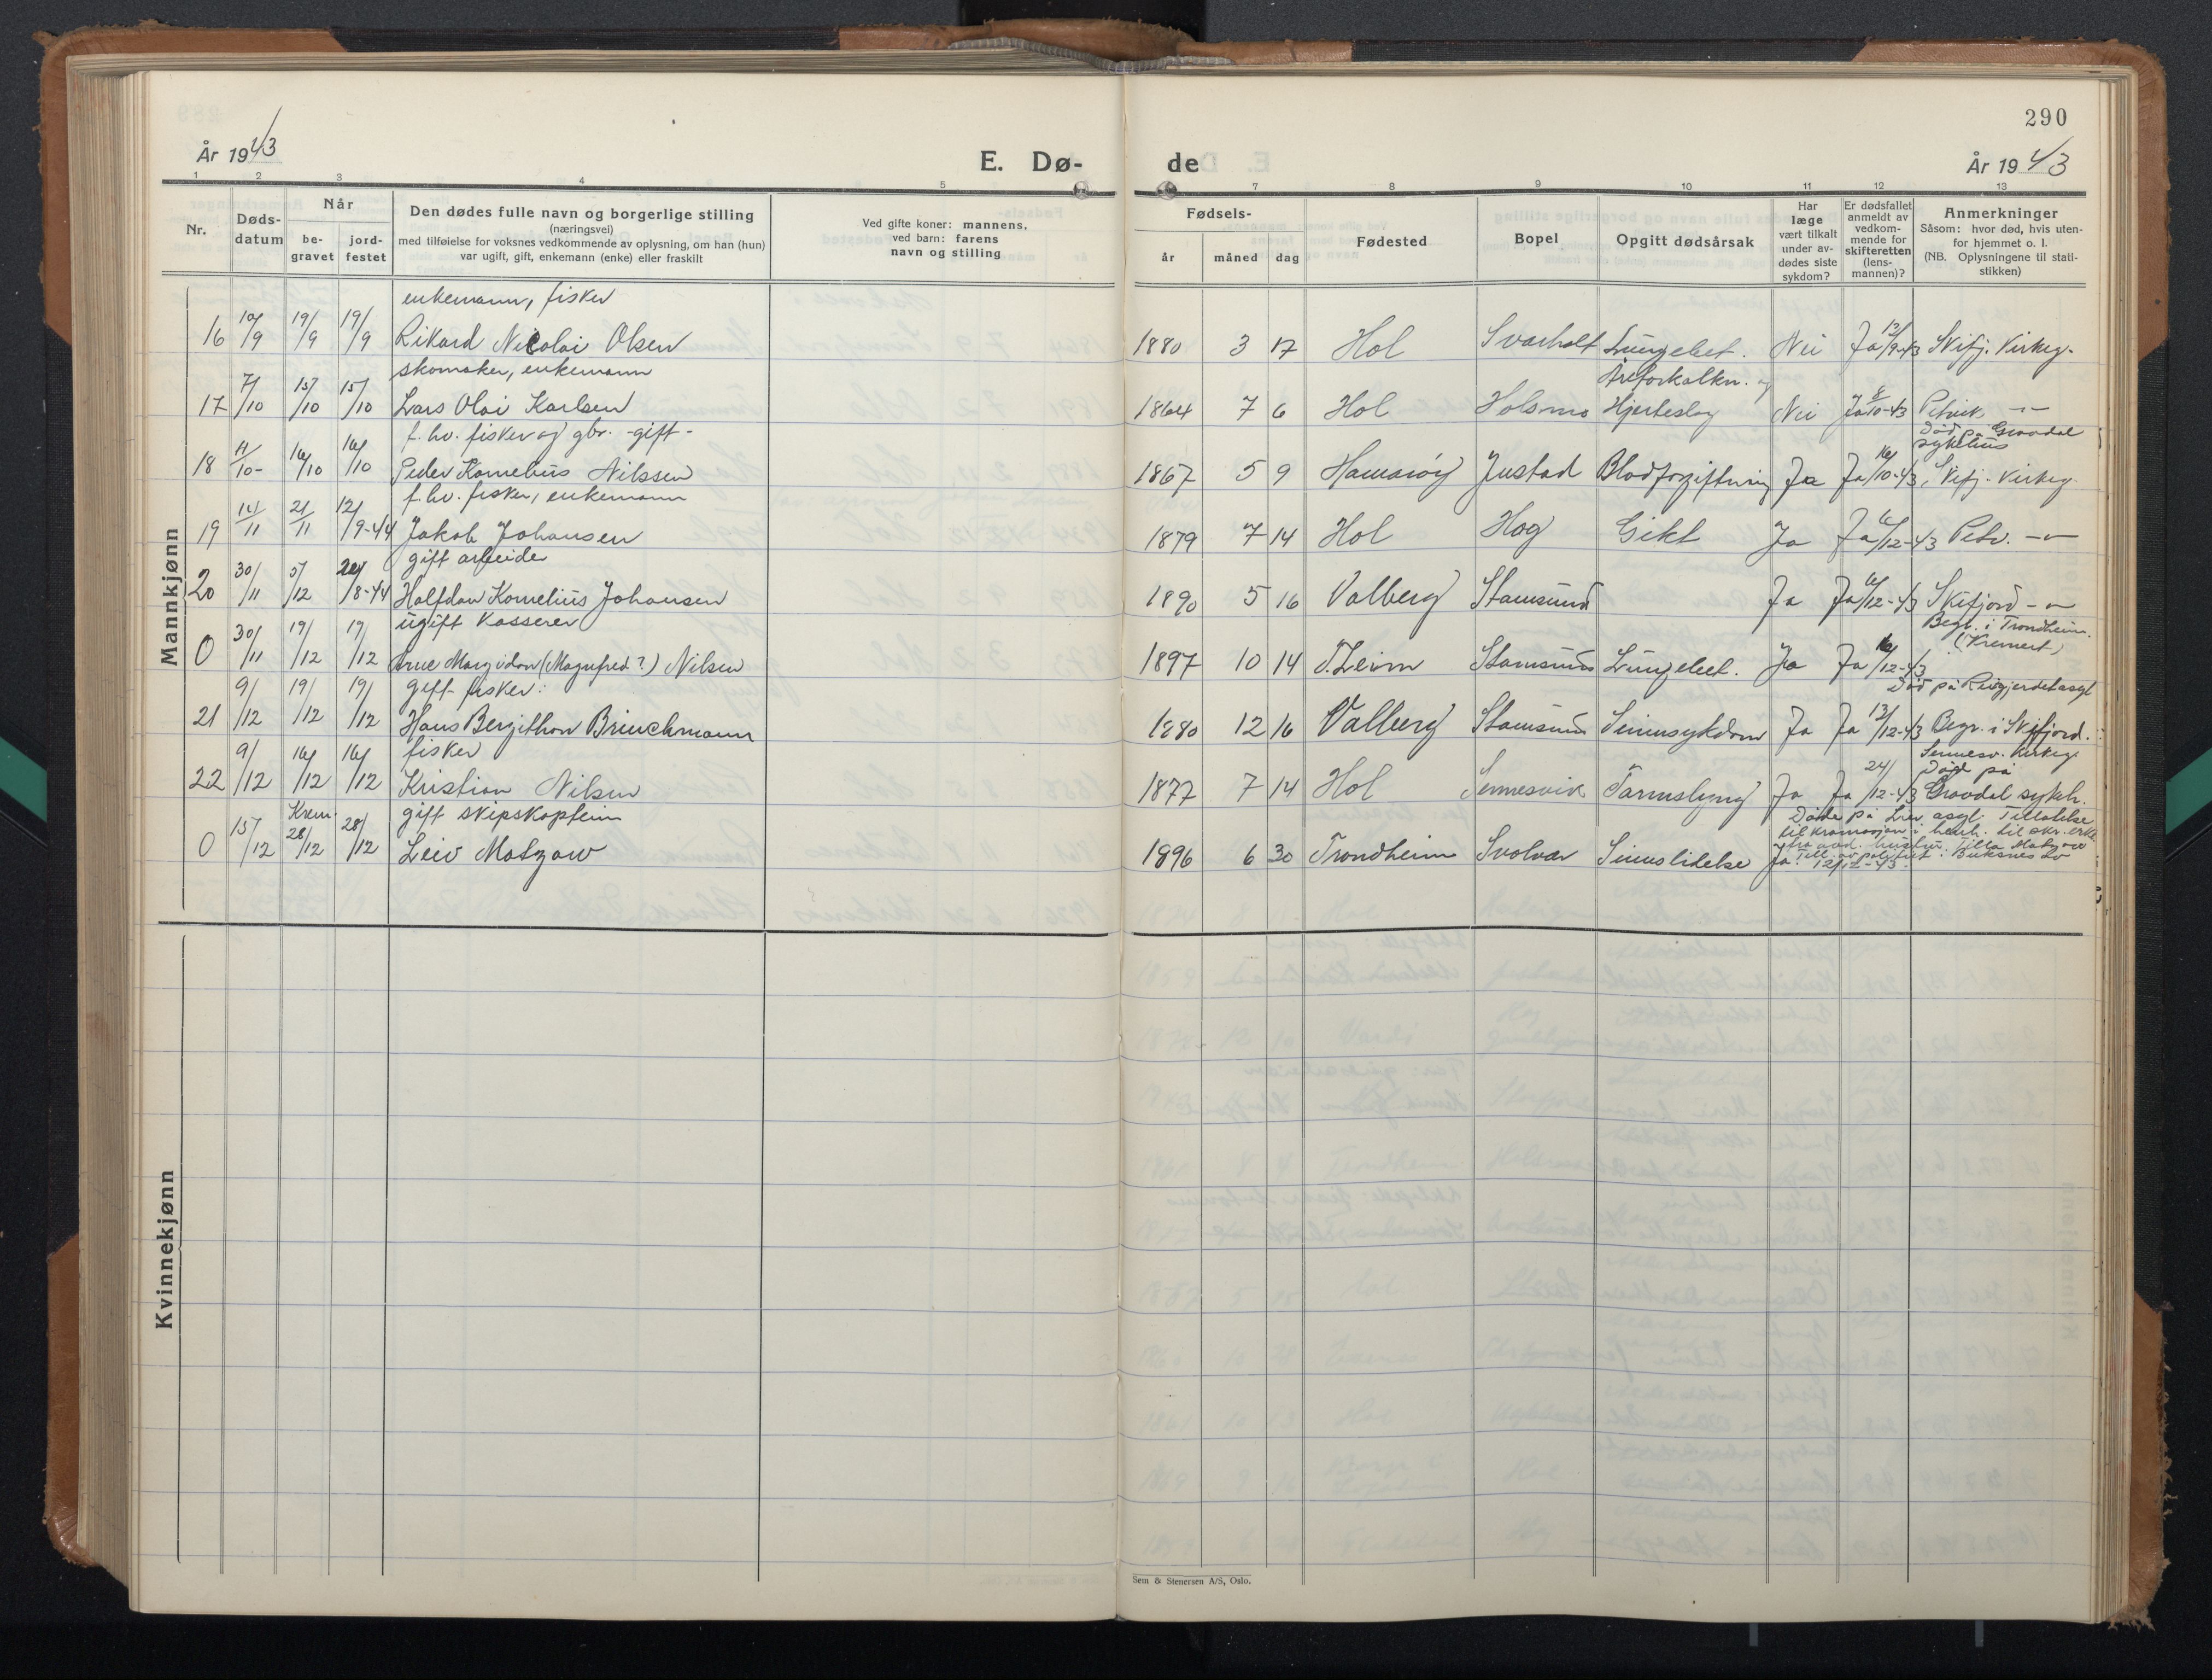 290
År 1943
E. Dø-
de
År 1943
1 2 3 4 5 7 8 9 10 11 12 13
Nr.
Døds-
datum
Når
be-
gravet
jord-
festet
Den dødes fulle navn og borgerlige stilling
(næringsvei)
med tilføielse for voksnes vedkommende av oplysning, om han (hun)
var ugift, gift, enkemann (enke) eller fraskilt
Ved gifte koner: mannens,
ved barn: farens
navn og stilling
Fødsels-
år måned dag
Fødested
Bopel
Opgitt dødsårsak
Har
læge
vært tilkalt
under av-
dødes siste
sykdom?
Er dødsfallet
anmeldt av
vedkom-
mende for
skifteretten
(lens-
mannen)?
Anmerkninger
Såsom: hvor død, hvis uten-
for hjemmet o. l.
(NB. Oplysningene til stati-
stikken)
Mannkjønn
enkemann, fisker
16 10/9 19/9 19/9 Rikard Nicolai Olsen 1880 3 17 Hol Svarholt Lungebet. Nei Ja 13/9-43 Skifj. Kirkeg.
skomaker, enkemann Areforkalkn. og
17 7/10 15/10 15/10 Lars Olai Karlsen 1864 7 6 Hol Holsmo Hjerteslag Nei Ja 8/10-43 Petvik -"-
f. hv. fisker og gbr. -gift- Død på Gravdal
sykehus
18 11/10- 16/10 16/10 Peder Kornelius Nilssen 1867 5 9 Hamarøy Justad Blodforgiftning Ja Ja 16/10-43, Skifj. Kirkeg.
f. hv. fisker, enkemann
19 14/11 21/11 12/9-44 Jakob Johansen 1879 7 14 Hol Hag Gikt Ja Ja 6/12-43 Petv. -"-
gift arbeider
20 30/11 5/12 20/8-44 Halfdan Kornelius Johansen 1890 5 16 Valberg Stamsund Ja Ja 6/12-43 Skifjord -"-
ugift Kasserer Begr. i Trondheim.
(Kremert)
0 30/11 19/12 19/12 Arne Margidon (Magnfred?) Nilsen 1897 10 14 Stamsund Lungebet. Ja Ja 16/12-43
gift fisker: Død på Reitgjerdet asyl
21 9/12 19/12 19/12 Hans Berjithon Brinchmann 1880 12 16 Valberg Stamsund Sinnsykdom Ja Ja 13/12-43 Begr. i Skifjord.
fisker Sennesv. Kirkeg.
Død på
22 9/12 16/12 16/12 Kristian Nilsen 1877 7 14 Hol Sennesvik Tarmslyng Ja Ja 24/12-43 Gravdal sykh.
gift skipskaptein Døde på asyl. Tillatelse
til kremasjon i henh. til skr. erkl.
fra avd. hustru Tilla Matzow
0 15/12 Krem. 28/12 28/12 Leiv Matzow 1896 6 30 Trondheim Svolvær Sinnslidelse Ja. Till. av politiet i Buksnes
12/12-43.
Kvinnekjønn
Sem & Stenersen A/S, Oslo.